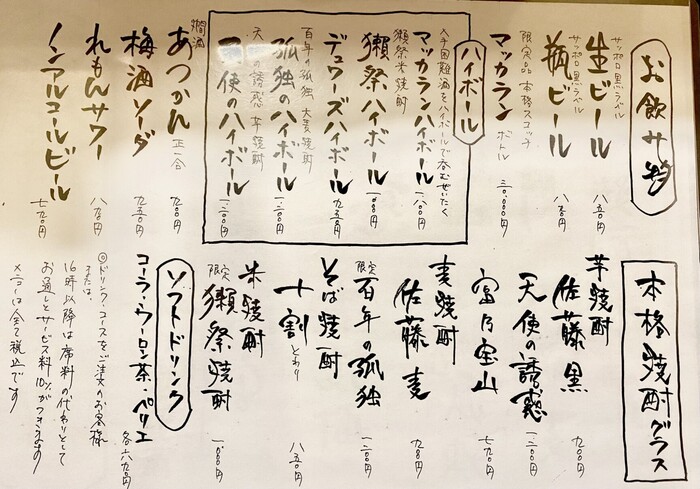 お飲み物
サッポロ黒ラベル
生ビール 八五〇円
サッポロ黒ラベル
瓶ビール 八五〇円
限定品 本格スコッチ
マッカラン ボトル 三〇〇〇〇円
ハイボール
入手困難酒をハイボールで呑むぜいたく
マッカランハイボール 一八〇〇円
獺祭米焼酎
獺祭ハイボール 一〇〇〇円
デュワーズハイボール 九五〇円
百年の孤独 大麦焼酎
孤独のハイボール 一二〇〇円
天使の誘惑 芋焼酎
天使のハイボール 一二〇〇円
燗酒
あつかん 正一合 九〇〇円
梅酒ソーダ 九五〇円
れもんサワー 八九〇円
ノンアルコールビール 七九〇円
本格焼酎グラス
芋焼酎
佐藤 黒 九〇〇円
天使の誘惑 一二〇〇円
富乃宝山 七九〇円
麦焼酎
佐藤 麦 九〇〇円
限定
百年の孤独 一二〇〇円
そば焼酎
十割 とわり 八五〇円
米焼酎
限定
獺祭焼酎 一〇〇〇円
ソフトドリンク
コーラ・ウーロン茶・ペリエ 各六九〇円
◎ドリンク、コースをご注文のお客様
または、
16時以降は席料の代わりとして
お通しとサービス料10%がつきます
メニューは全て税込です